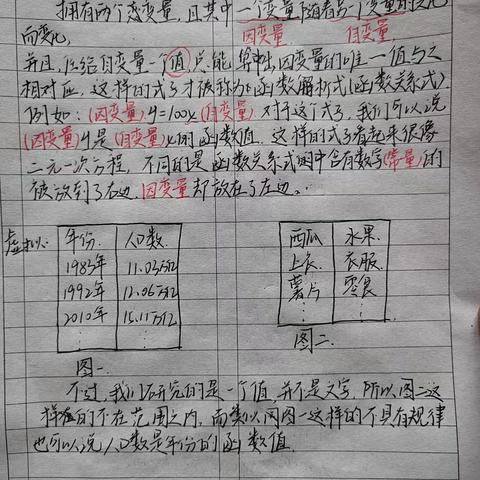 拥有两个变量，且其中一个变量随着另一个变量的变化
而变化，
因变量 自变量
并且，任给自变量一个值，只能算出因变量的唯一值与之
相对应，这样的式子才被称为函数解析式(函数关系式)
例如：(因变量)y=100x(自变量) 对于这个式子，我们可以说
(因变量)y是(自变量)x的函数值，这样的式子看起来很像
二元一次方程，不同的是函数关系式中含有数字(常量)的
被放到了右边，因变量却放在了左边。
虚拟：
年份 人口数
1983年 11.03万亿
1992年 12.06万亿
2010年 15.11万亿
⋮ ⋮
图一
西瓜 水果
上衣 衣服
薯片 零食
⋮ ⋮
图二
不过，我们研究的是一个值，并不是文字，所以图二这
样的不在范围之内，而类似同图一这样的不具有规律
也可以说人口数是年份的函数值